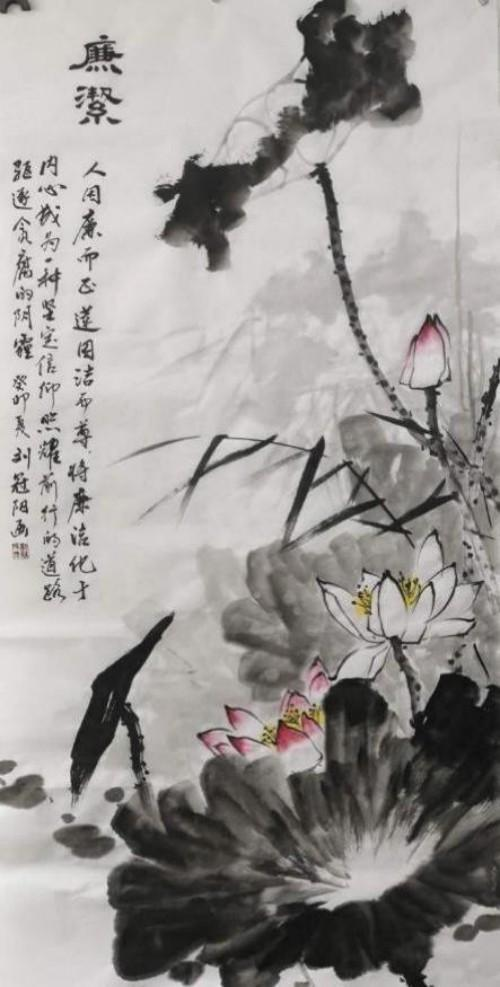 廉潔
人因廉而正莲因洁而尊将廉洁化于
内心成为一种坚定信仰照耀前行的道路
驱逐贪腐的阴霾 癸卯夏刘冠阳画